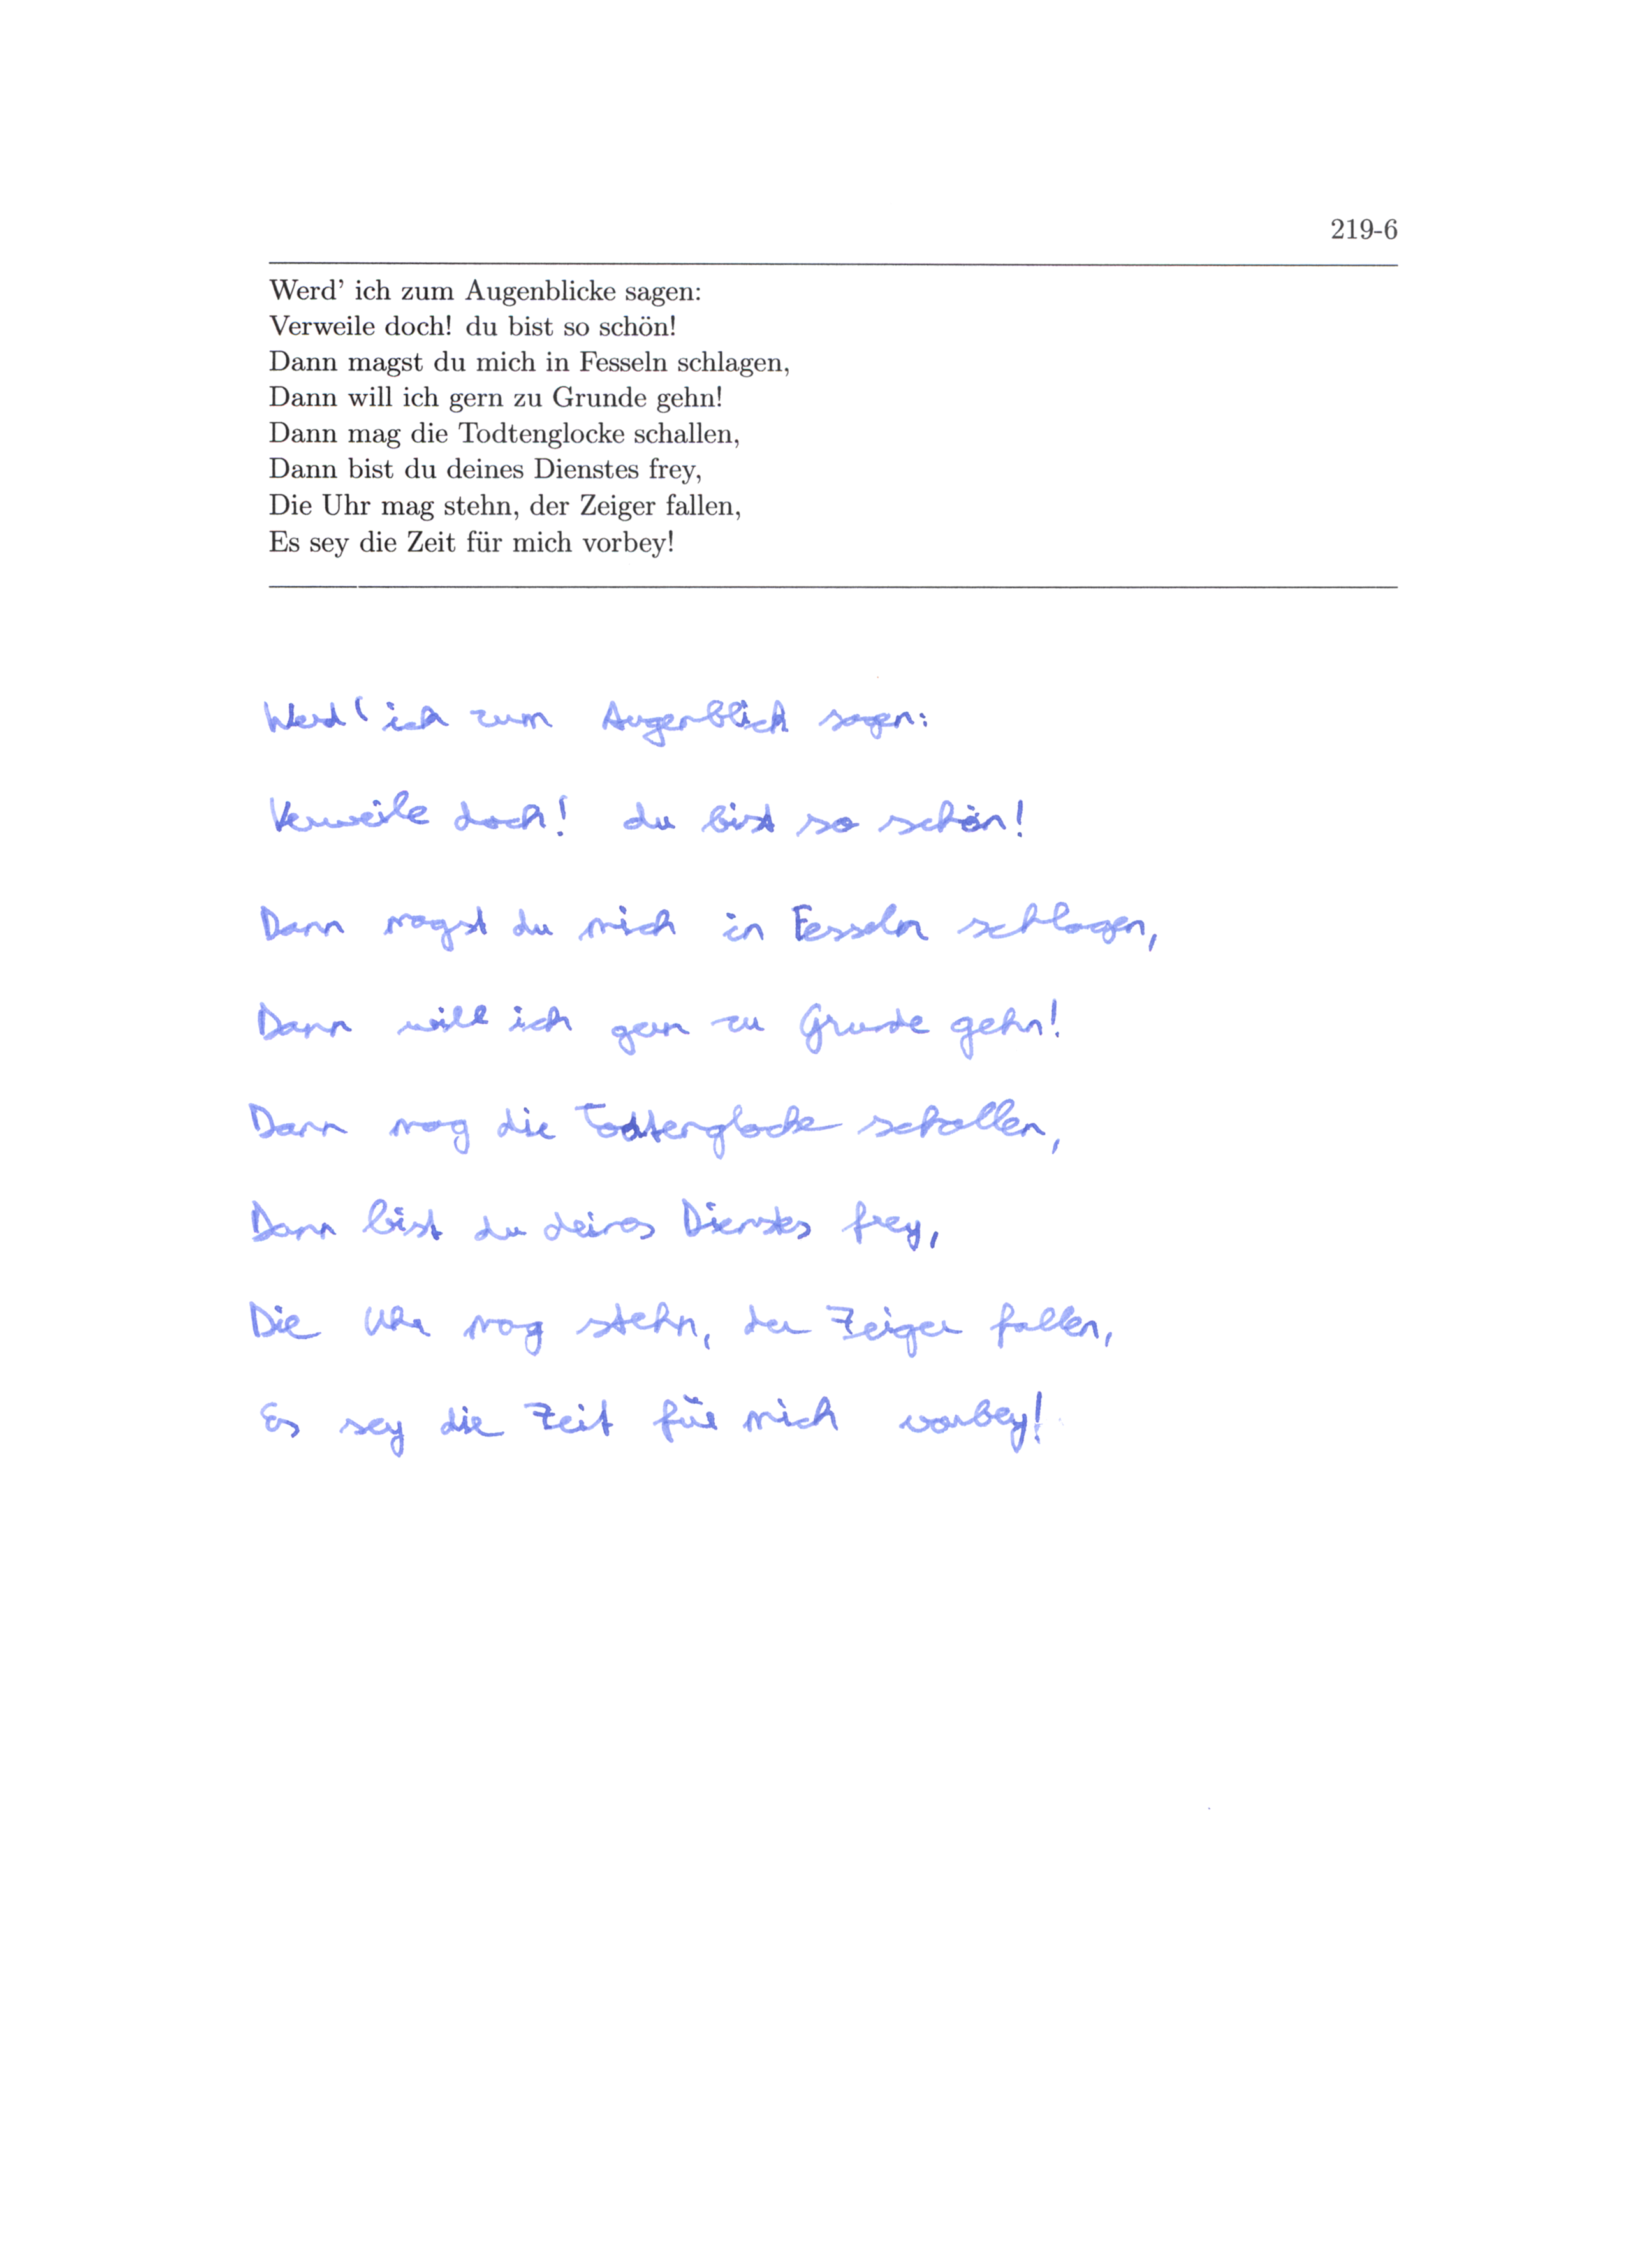 219-6
Werd' ich zum Augenblicke sagen:
Verweile doch! du bist so schön!
Dann magst du mich in Fesseln schlagen,
Dann will ich gern zu Grunde gehn!
Dann mag die Todtenglocke schallen,
Dann bist du deines Dienstes frey,
Die Uhr mag stehn, der Zeiger fallen,
Es sey die Zeit für mich vorbey!
Werd' ich zum Augenblick sagen:
Verweile doch! du bist so schön!
Dann magst du mich in Fesseln schlagen,
Dann will ich gern zu Grunde gehn!
Dann mag die Todtenglocke schallen,
Dann bist du deines Dienstes frey,
Die Uhr mag stehn, der Zeiger fallen,
Es sey die Zeit für mich vorbey!